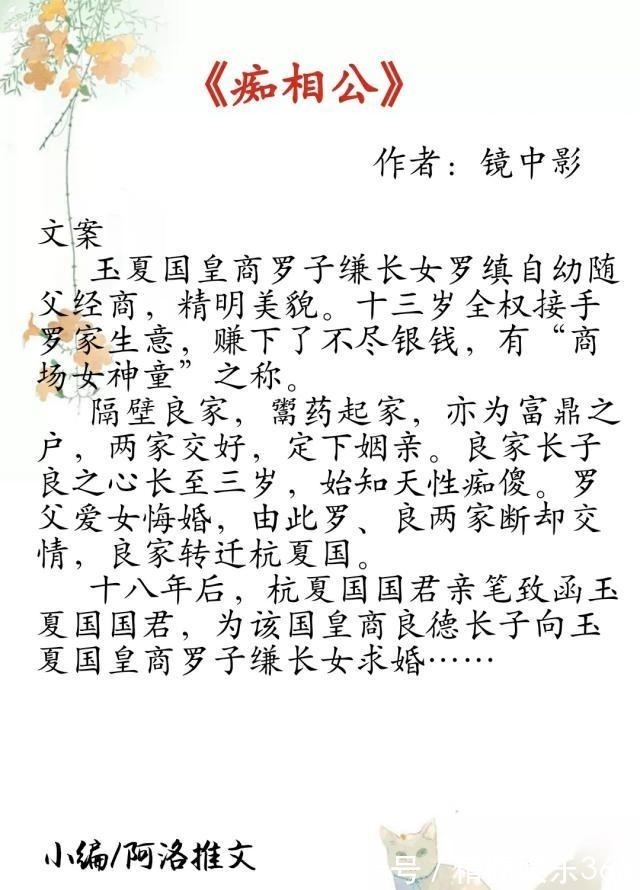 《痴相公》
作者：镜中影
文案
玉夏国皇商罗子缣长女罗缜自幼随
父经商，精明美貌。十三岁全权接手
罗家生意，赚下了不尽银钱，有“商
场女神童”之称。
隔壁良家，鬻药起家，亦为富鼎之
户，两家交好，定下姻亲。良家长子
良之心长至三岁，始知天性痴傻。罗
父爱女悔婚，由此罗、良两家断却交
情，良家转迁杭夏国。
十八年后，杭夏国国君亲笔致函玉
夏国国君，为该国皇商良德长子向玉
夏国皇商罗子缣长女求婚……
小编/阿洛推文
号/精
乐36